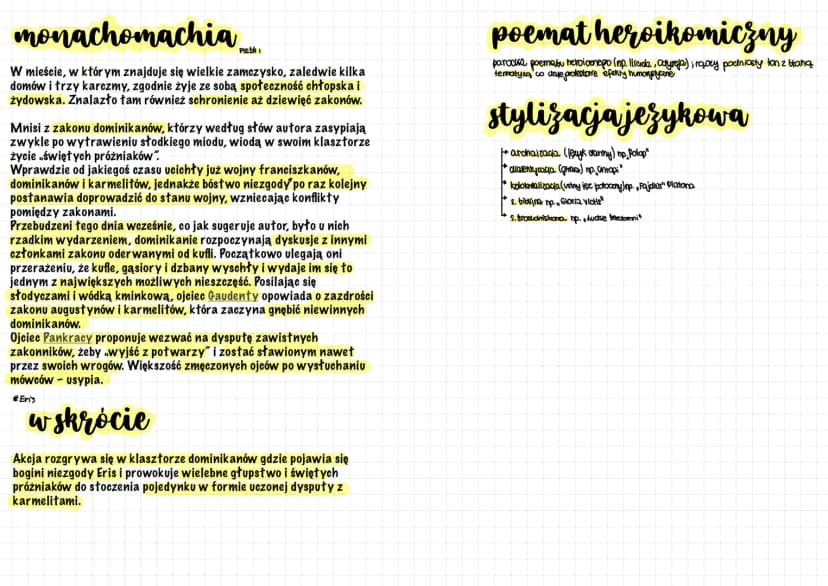 monachomachia
Pieśń I
W mieście, w którym znajduje się wielkie zamczysko, zaledwie kilka
domów i trzy karczmy, zgodnie żyje ze sobą społeczność chłopska i
żydowska. Znalazło tam również schronienie aż dziewięć zakonów.
Mnisi z zakonu dominikanów, którzy według słów autora zasypiają
zwykle po wytrawieniu słodkiego miodu, wiodą w swoim klasztorze
życie „świętych próżniaków”.
Wprawdzie od jakiegoś czasu ucichły już wojny franciszkanów,
dominikanów i karmelitów, jednakże bóstwo niezgody* po raz kolejny
postanawia doprowadzić do stanu wojny, wzniecając konflikty
pomiędzy zakonami.
Przebudzeni tego dnia wcześnie, co jak sugeruje autor, było u nich
rzadkim wydarzeniem, dominikanie rozpoczynają dyskusje z innymi
członkami zakonu oderwanymi od kufli. Początkowo ulegają oni
przerażeniu, że kufle, gąsiory i dzbany wyschły i wydaje im się to
jednym z największych możliwych nieszczęść. Posilając się
słodyczami i wódką kminkową, ojciec Gaudenty opowiada o zazdrości
zakonu augustynów i karmelitów, która zaczyna gnębić niewinnych
dominikanów.
Ojciec Pankracy proponuje wezwać na dysputę zawistnych
zakonników, żeby „wyjść z potwarzy” i zostać sławionym nawet
przez swoich wrogów. Większość zmęczonych ojców po wysłuchaniu
mówców – usypia.
* Eris
w skrócie
Akcja rozgrywa się w klasztorze dominikanów gdzie pojawia się
bogini niezgody Eris i prowokuje wielebne głupstwo i świętych
próżniaków do stoczenia pojedynku w formie uczonej dysputy z
karmelitami.
poemat heroikomiczny
parodia poematu heroicznego (np. Iliada, Odyseja), łączy podniosły ton z błahą
tematyką, co daje efekty humorystyczne
stylizacja językowa
archaizacja (język dawny) np. „Potop”
dialektyzacja (gwara) np. „Chłopi”
kolokwializacja (wolny, potoczny) np. „Fajdros” Platona
s. biblijna np. „Gloria victis”
s. środowiskowa np. „Ludzie bezdomni”